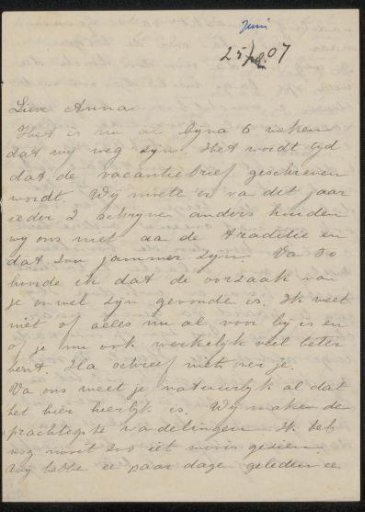 Juni
25/ 07
Lieve Anna
Het is nu al bijna 6 weken
dat wij weg zijn. Het wordt tijd
dat de vacantiebrief geschreven
wordt. Wij moete er va dit jaar
ieder 2 schrijven anders houden
wij ons niet aa de traditie en
dat zou jammer zijn. Va To
hoorde ik dat de oorzaak van
je onwel zijn gevonde is. Ik weet
niet of alles nu al voor bij is en
of je nu ook werkelijk veel beter
bent. Ha schreef niets over je.
Va ons weet je natuurlijk al dat
het hier heerlijk is. Wij make de
prachtigste wandelingen. Ik heb
nog nooit zoo iets moois gezien.
Wij hebbe ee paar dage geleden ee